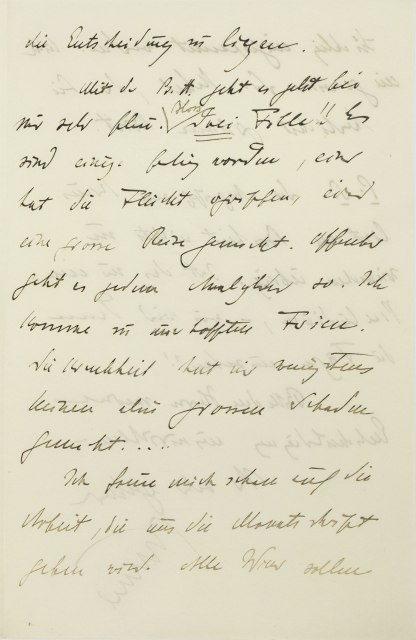 die Entscheidung zu liegen.
Mit der B.tt. geht es jetzt bei
mir sehr flau. Bloss zwei Fälle!! Es
sind einige felig worden, einer
hat die Flucht ergriffen, einer
eine grosse Reise gemacht. Offenbar
geht es jedem Analytiker so. Ich
komme zu unverhofften Ferien.
Die Krankheit hat mir wenigstens
keinen also grossen Schaden
gemacht....
Ich freue mich schon auf die
Arbeit, die uns die Monatsschrift
geben wird. Alle Wiener sollen